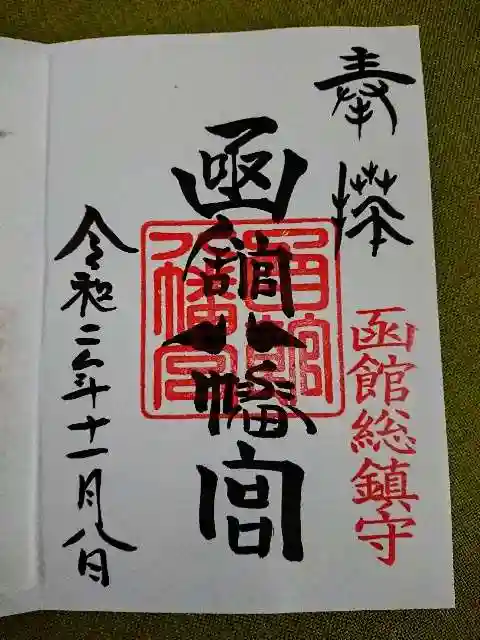 奉拝
函館総鎮守
函館八幡宮
函館八幡宮
令和二年十一月八日